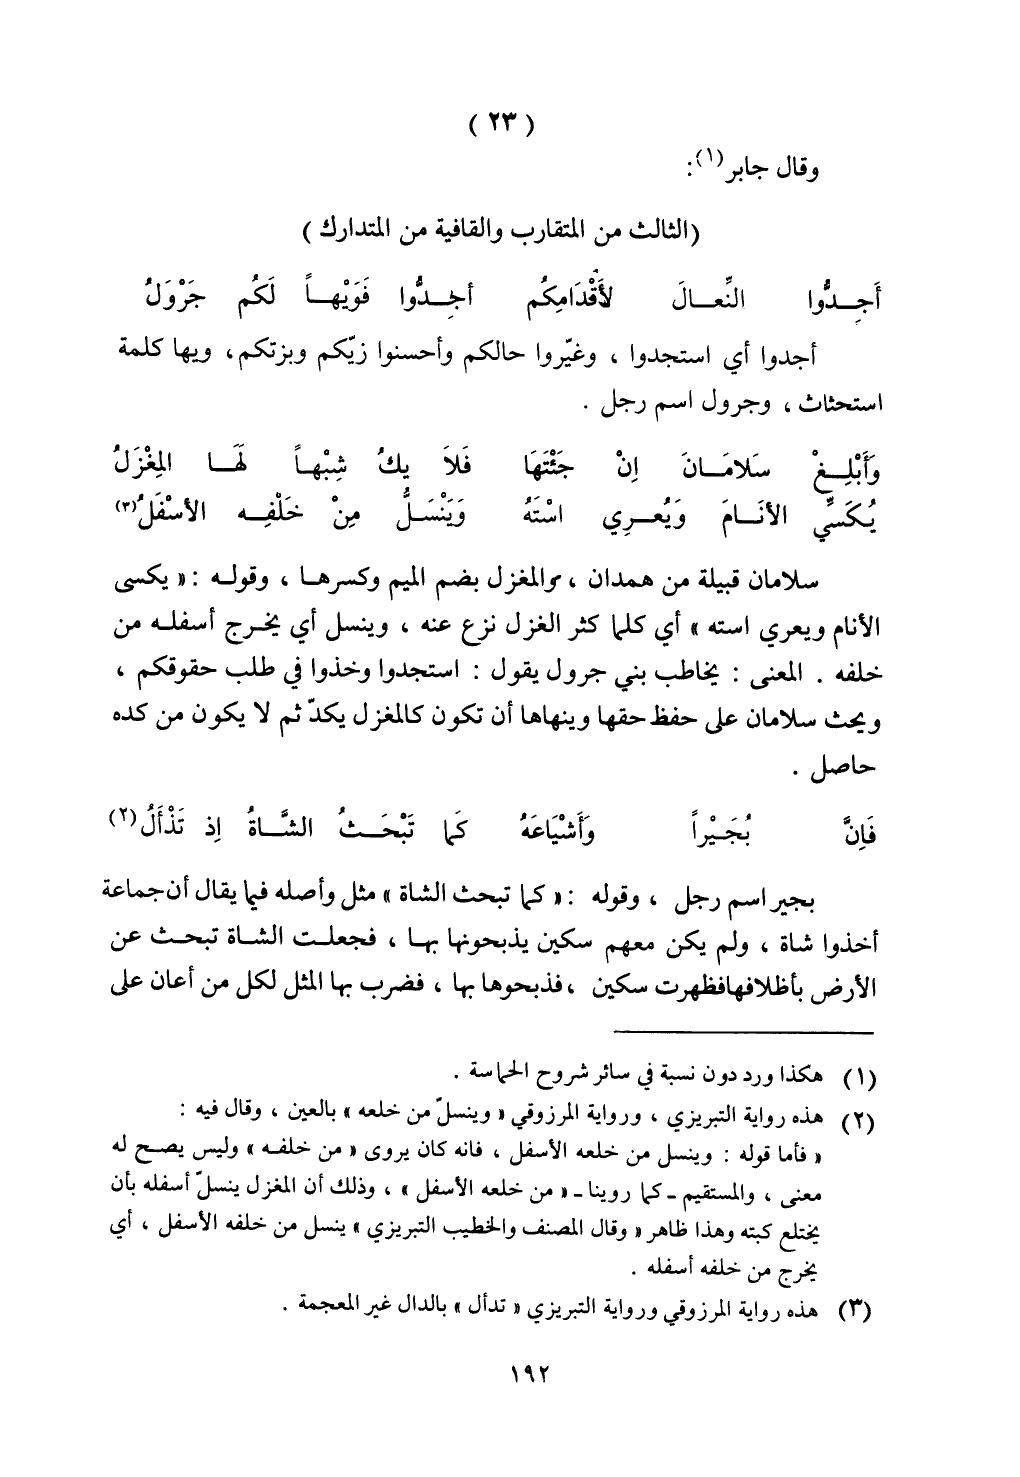 ( ٢٣ )
وقال جابر(١):
(الثالث من المتقارب والقافية من المتدارك )
أَجِـدُّوا النِّعـالَ لأَقْدَامِكُم أجِـدُّوا فَوَيْهـاً لَكُم جَرْوَلُ
أجدوا أي استجدوا ، وغيّروا حالكم وأحسنوا زيّكم وبزتكم، ويها كلمة
استحثاث ، وجرول اسم رجل .
وَأَبْلِـغْ سَلامَـانَ إنْ جَئْتَهَا فَلاَ يكُ شِبْهـاً لَهَـا المِغْزَلُ
يُكَسِّي الأنَـامَ وَيُعـرِي اسْتَهُ وَيَنْسَـلُّ مِنْ خَلْفِـه الأسْفَلُ(٣)
سلامان قبيلة من همدان ، والمغزل بضم الميم وكسرهـا ، وقولـه : « يكسى
الأنام ويعري استه » أي كلما كثر الغزل نزع عنه ، وينسل أي يخـرج أسفلـه من
خلفه . المعنى : يخاطب بني جرول يقول : استجدوا وخذوا في طلب حقوقكم ،
ويحث سلامان على حفظ حقها وينهاها أن تكون كالمغزل يكدّ ثم لا يكون من كده
حاصل .
فَإنَّ بُجَيْـراً وَأَشْيَاعَهُ كَما تَبْحَـثُ الشَّـاةُ إذ تَذْأَلُ(٢)
بجير اسم رجل ، وقوله : « كما تبحث الشاة » مثل وأصله فيما يقال أن جماعة
أخذوا شاة ، ولم يكن معهم سكين يذبحونها بهـا ، فجعلـت الشـاة تبحـث عن
الأرض بأظلافهافظهرت سكين ،فذبحوها بها ، فضرب بها المثل لكل من أعان على
(١) هكذا ورد دون نسبة في سائر شروح الحماسة .
(٢) هذه رواية التبريزي ، ورواية المرزوقي « وينسلّ من خلعه » بالعين ، وقال فيه :
« فأما قوله : وينسل من خلعه الأسفل ، فانه كان يروى « من خلفـه » وليس يصـح له
معنى ، والمستقيم ـ كما روينا ـ « من خلعه الأسفل » ، وذلك أن المغزل ينسلّ أسفله بأن
يختلع كبته وهذا ظاهر « وقال المصنف والخطيب التبريزي » ينسل من خلفه الأسفل ، أي
يخرج من خلفه أسفله .
(٣) هذه رواية المرزوقي ورواية التبريزي « تدأل » بالدال غير المعجمة .
١٩٢